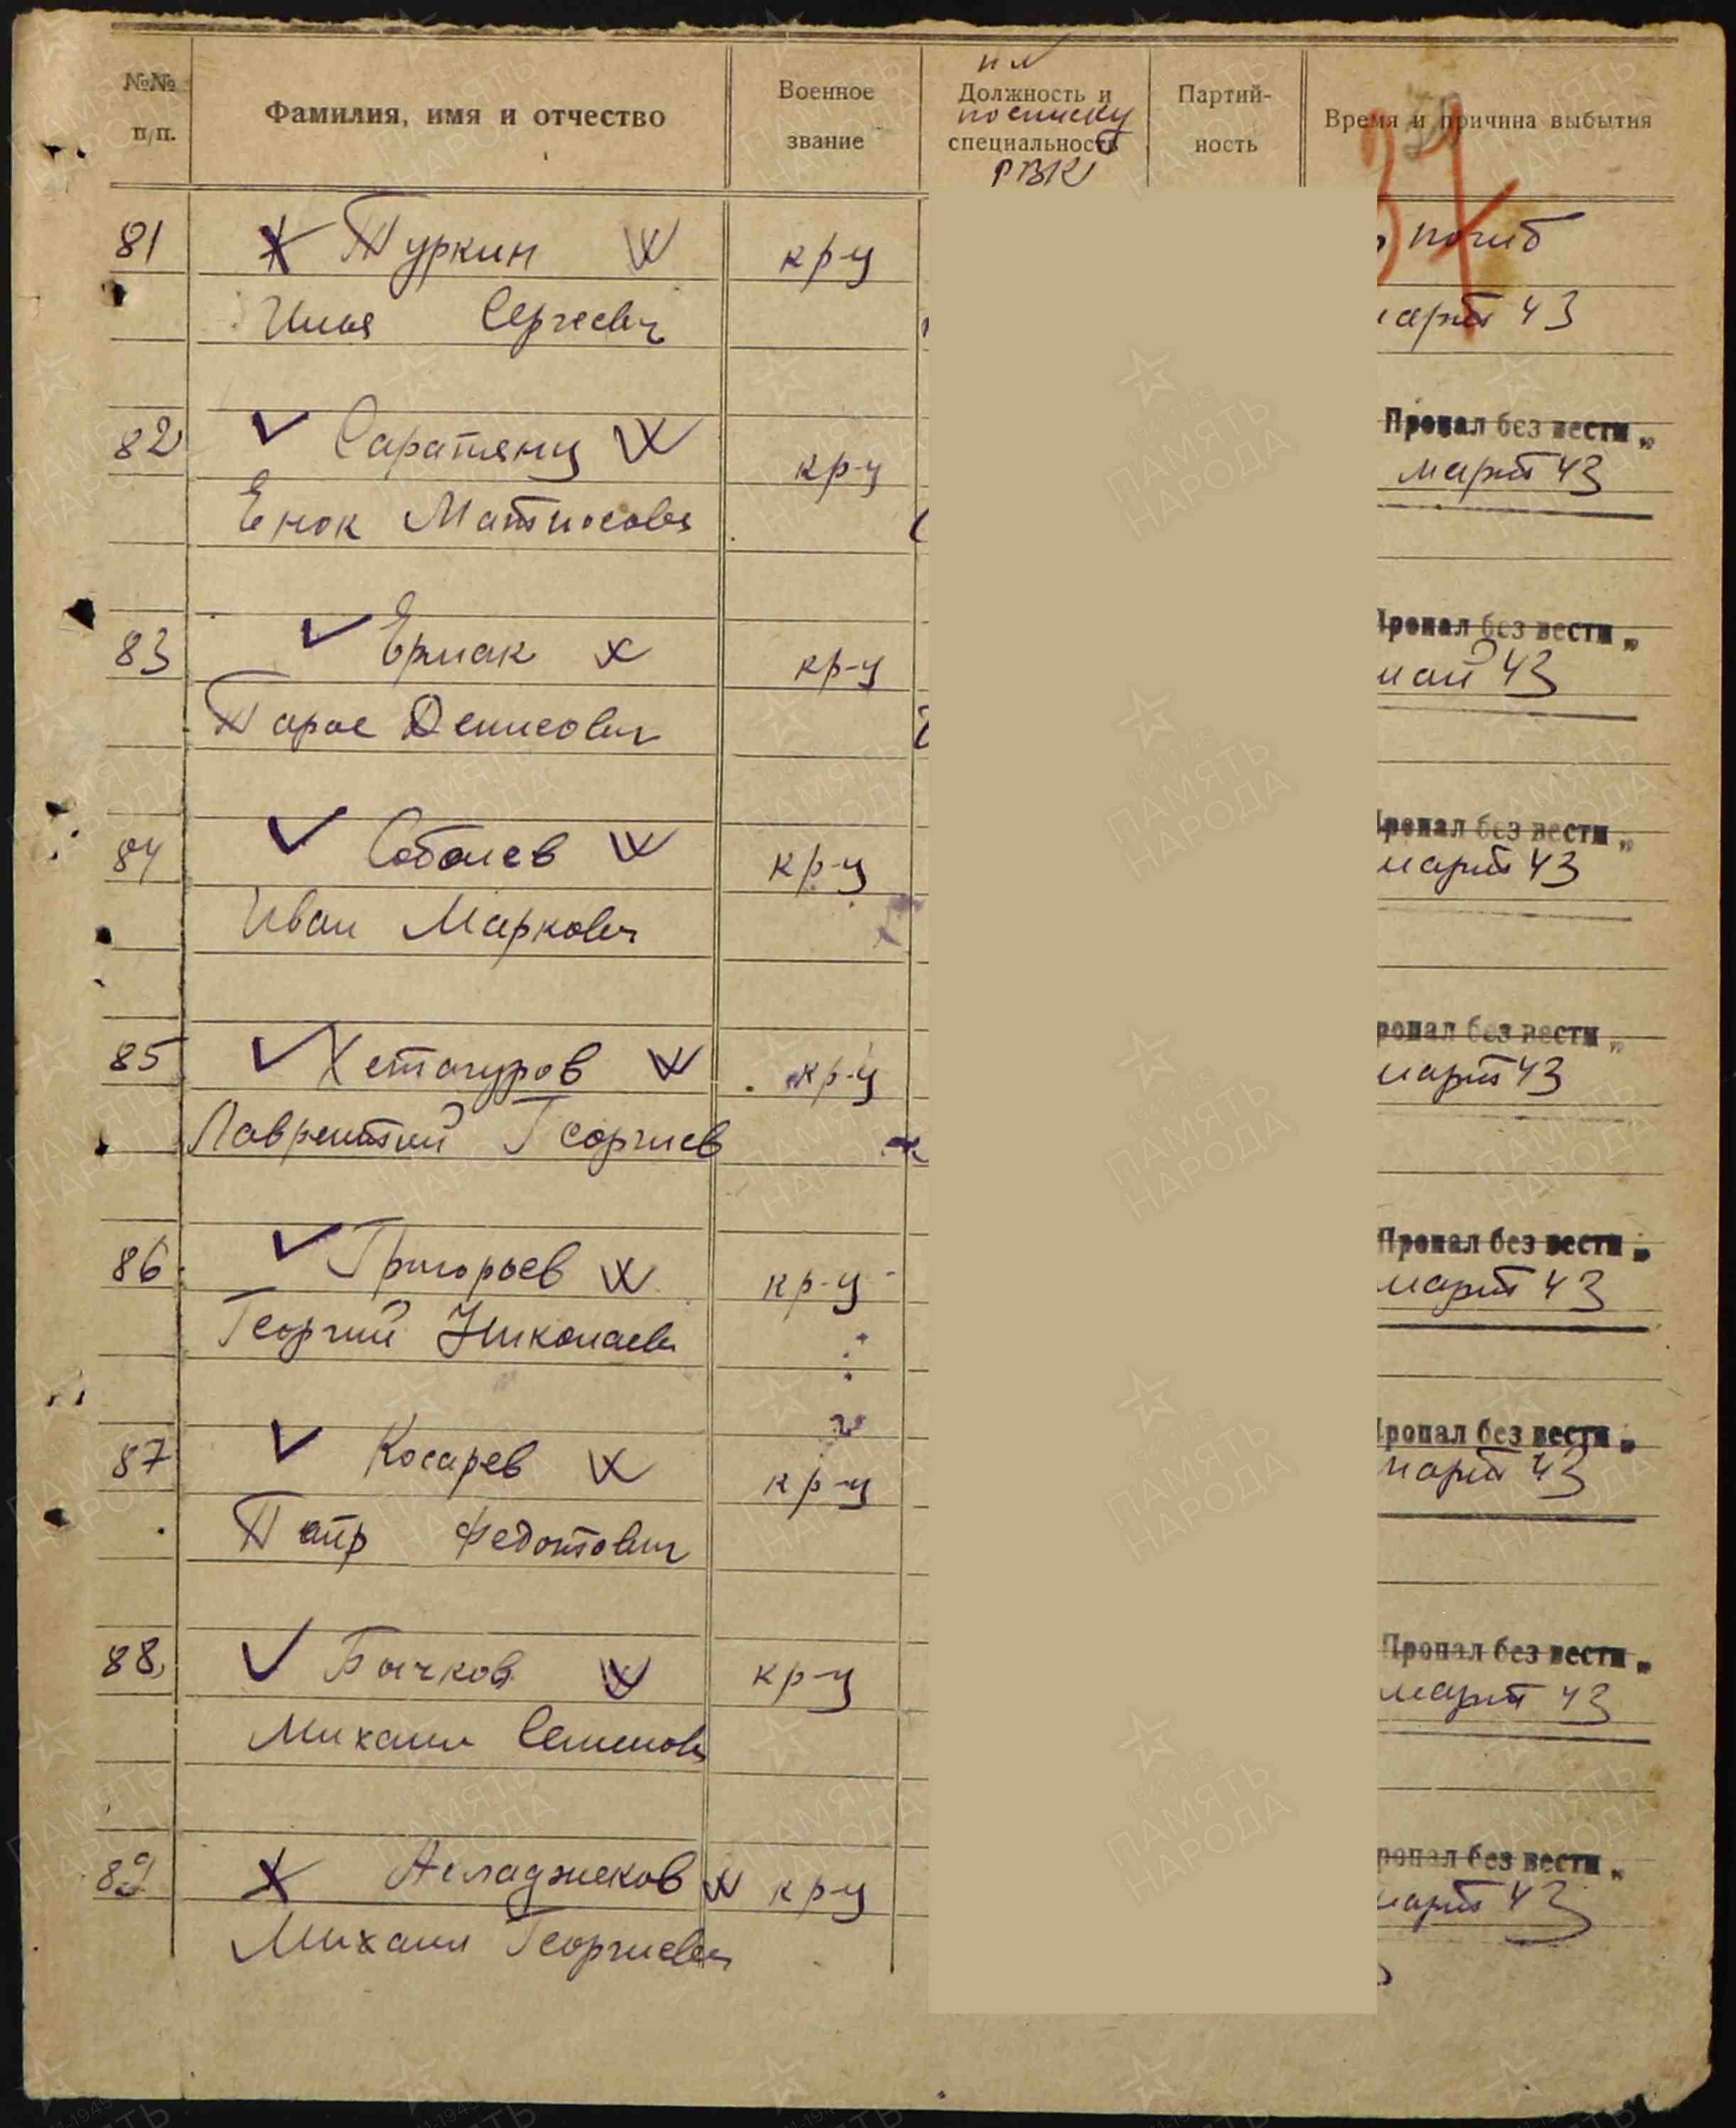 №№ п/п.
Фамилия, имя и отчество
Военное звание
Должность и специальность
по списку РВК
Партий-ность
Время и причина выбытия
81 Туркин кр-ц погиб
Илья Сергеевич март 43
82 Саратянц кр-ц Пропал без вести
Енок Матиосович март 43
83 Ермак кр-ц Пропал без вести
Тарас Денисович май 43
84 Соболев кр-ц Пропал без вести
Иван Маркович март 43
85 Хетагуров кр-ц Пропал без вести
Лаврентий Георгиев март 43
86 Григорьев кр-ц Пропал без вести
Георгий Николаев март 43
87 Косарев кр-ц Пропал без вести
Петр Федотович март 43
88 Бычков кр-ц Пропал без вести
Михаил Семенов март 43
89 Асладжеков кр-ц Пропал без вести
Михаил Георгиевич март 43
ПАМЯТЬ НАРОДА